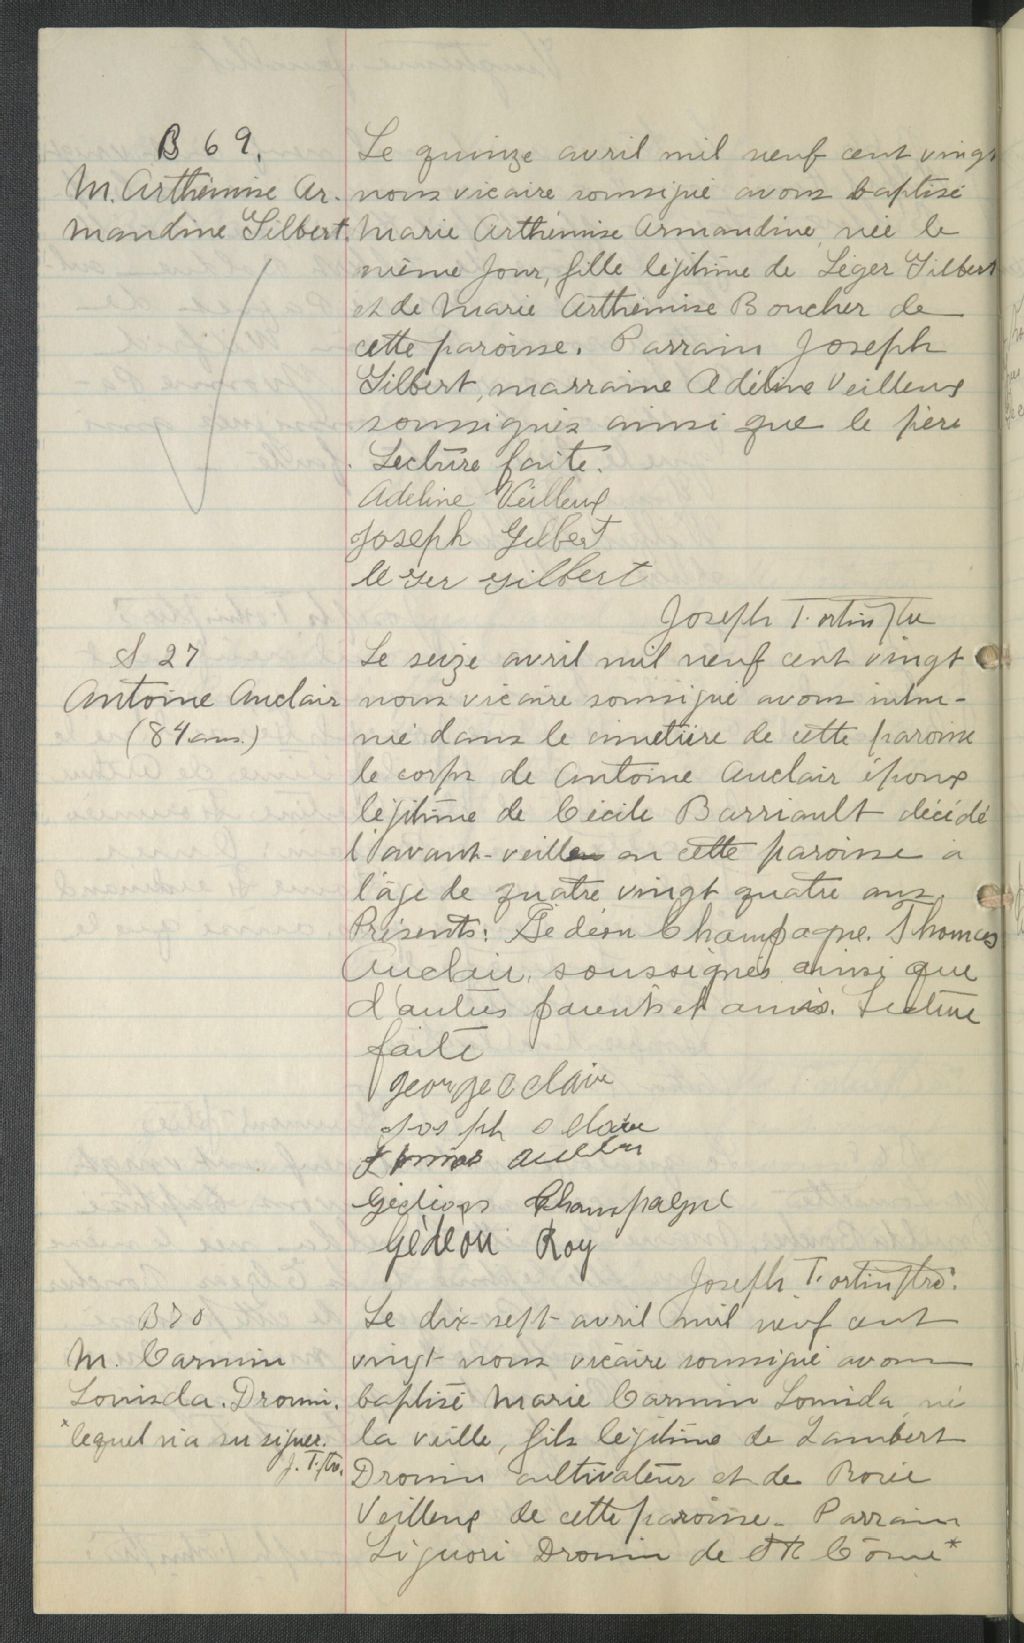 B 69.
M. Arthémise Ar-
mandine Gilbert.
Le quinze avril mil neuf cent vingt
nous vicaire soussigné avons baptisé
Marie Arthémise Armandine, née le
même jour, fille légitime de Léger Gilbert
et de Marie Arthémise Boucher de
cette paroisse. Parrain Joseph
Gilbert, marraine Adéline Veilleux
soussignés ainsi que le père
. Lecture faite.
Adeline Veilleux
Joseph Gilbert
Gilbert
Joseph Fortin Ptre
S 27
Antoine Auclair
(84 ans.)
Le seize avril mil neuf cent vingt
nous vicaire soussigné avons inhu-
mé dans le cimetière de cette paroisse
le corps de Antoine Auclair époux
légitime de Cécile Barriault décédé
l'avant-veille en cette paroisse a
l'âge de quatre vingt quatre ans.
Présents: Gédéon Champagne. Thomas
Auclair, soussignés ainsi que
d'autres parents et amis. Lecture
faite
george o claire
Josph o claire
Gédions Champagne
Gédéon Roy
Joseph Fortin Ptre.
B 70
M. Carmin
Lomida. Drouin.
*lequel n'a su signer.
J. F. Ptre.
Le dix-sept avril mil neuf cent
vingt nous vicaire soussigné avons
baptisé Marie Carmin Lomida, né
la veille, fils légitime de Lambert
Drouin cultivateur et de Rosée
Veilleux de cette paroisse. Parrain
Liguori Drouin de St Côme*